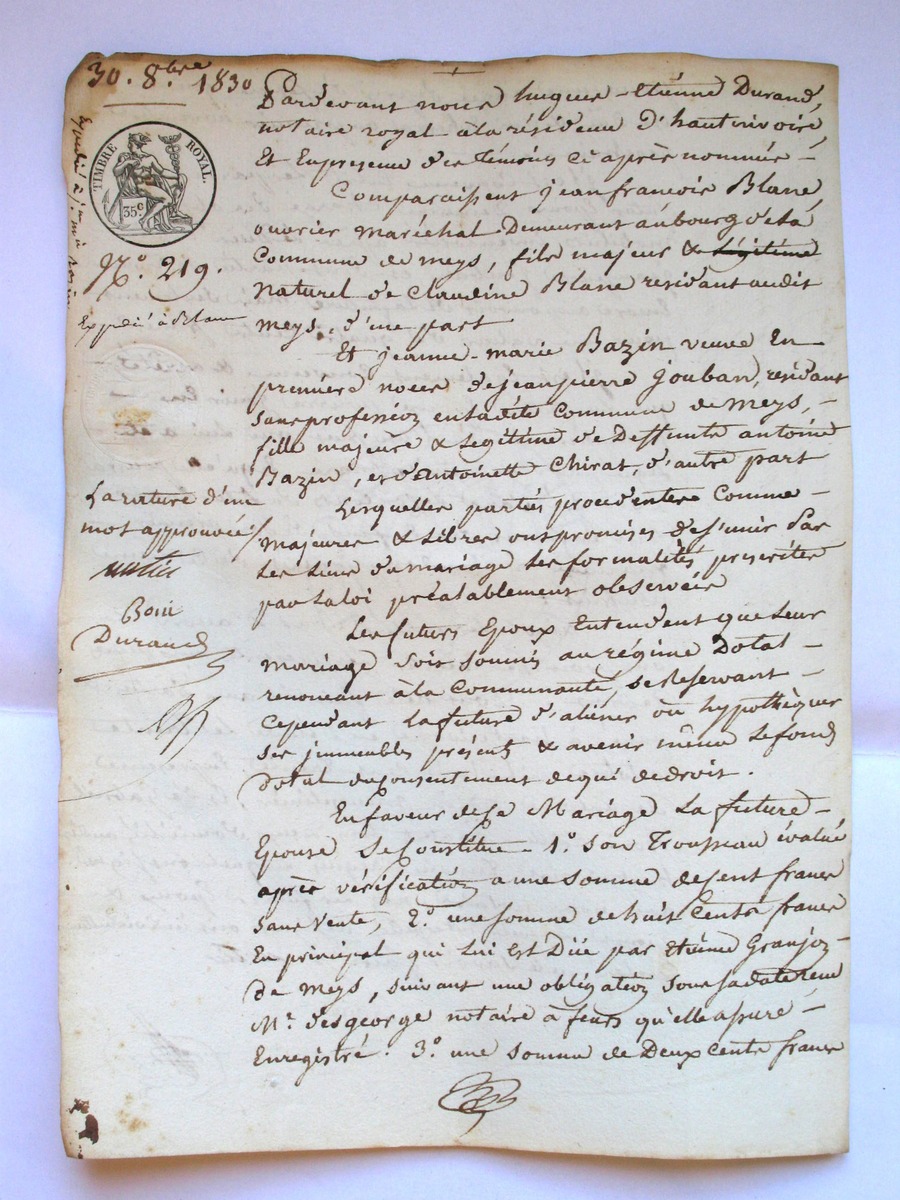 30. 8.bre 1830
TIMBRE ROYAL.
35c
N.o 219.
Expedié à Blanc
La rature d'un
mot approuvée
Durand
Pardevant nous hugues-Etienne Durand,
notaire royal à la résidence d'hautrivoire,
Et En presence des témoins ci après nommés -
Comparaissent jean françois Blanc
ouvrier maréchal Demeurant au bourg et à
Commune de meys, fils majeur & légitime
naturel de Claudine Blanc residant audit
meys, d'une part
Et jeanne-marie Bazin veuve En
première noces de jean pierre Gouban, residant
sans profession en ladite Commune de meys, -
fille majeure & Legitime de Deffunts antoine
Bazin, et d'antoinette Chirat, d'autre part
Lesquelles parties procedentes Comme -
majeures & Libres ont promises de s'unir Par
Les Liens du mariage Les formalités prescrites
par La loi préalablement observées
Les futurs Epoux Entendent que Leur
mariage soit soumis au régime Dotal -
renonceant à la Communauté, se Reservant -
Cependant La future d'aliener ou hypothèquer
ses immeubles présents & avenir même Le fond
Dotal du consentement de qui de droit.
En faveur de Ce Mariage La future -
Epouse se Constitue - 1.o son Trousseau évalué
après vérification a une somme de Cent francs
sans vente, 2.o une somme de huit Cents francs
En principal qui Lui Est Düe par Etienne Granjon
De Meys, suivant une obligation sous sa date reçue
M.e desgeorge notaire à feurs qu'elle assure -
Enregistré. 3.o une somme de Deux Cents francs